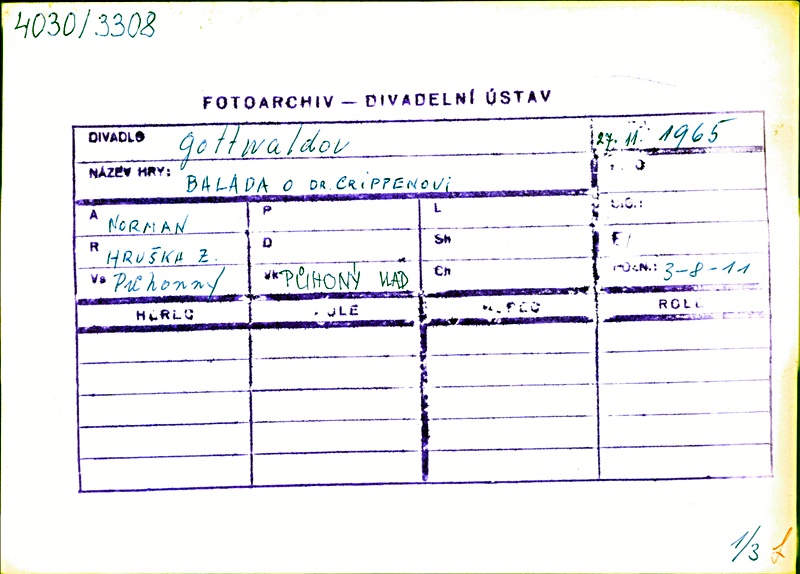 4030/3308
FOTOARCHIV — DIVADELNÍ ÚSTAV
DIVADLO Gottwaldov 27. 11. 1965
NÁZEV HRY: BALADA O DR. CRIPPENOVI
A NORMAN P L
R HRUŠKA Z. D Sh
Vs Příhonný Vk PŘÍHONÝ VLAD Ch POZN.: 3-8-11
HEREC ROLE HEREC ROLE
1/3